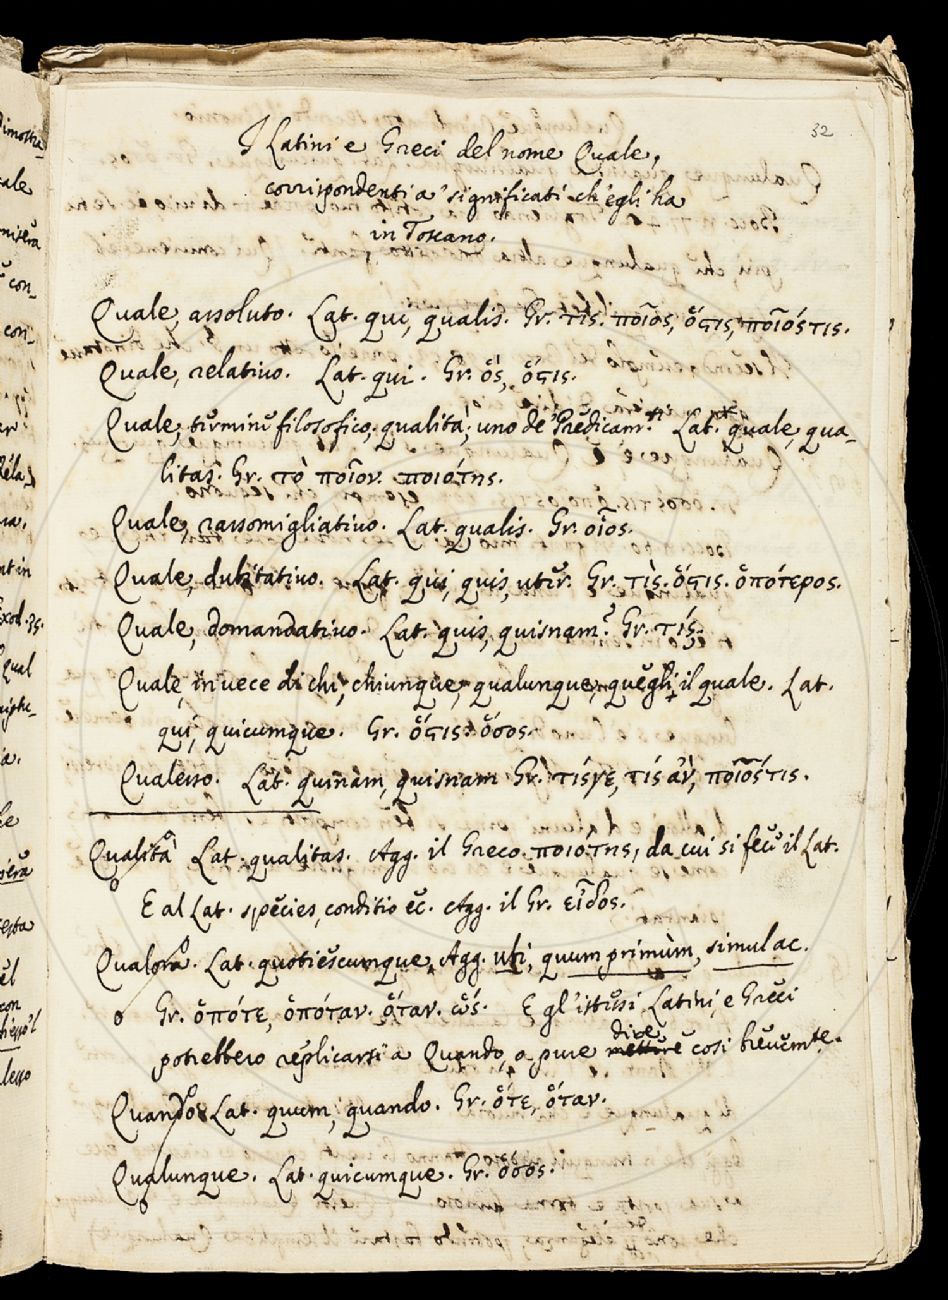 32
I Latini e Greci del nome Quale,
corrispondenti a' significati ch'egli ha
in Toscano.
Quale, assoluto. Lat. qui, qualis. Gr. τις. ποῖος, ὅςτις, ποῖόςτις.
Quale, relativo. Lat. qui. Gr. ὅς, ὅςτις.
Quale, termine filosofico, qualità; uno de' Predicam.ti Lat. quale, qua-
litas. Gr. τὸ ποῖον. ποιότης.
Quale, rassomigliativo. Lat. qualis. Gr. οἷος.
Quale, dubitativo. Lat. qui, quis, uter. Gr. τίς. ὅςτις. ὁπότερος.
Quale, domandativo. Lat. quis, quisnam? Gr. τίς.
Quale, in vece di chi, chiunque, qualunque, quegli, il quale. Lat.
qui, quicumque. Gr. ὅςτις. ὅσος.
Qualesso. Lat. quinam, quisnam. Gr. τίςγε, τίς ἄν, ποῖόςτις.
Qualità Lat. qualitas. Agg. il Greco ποιότης, da cui si fece il Lat.
E al Lat. species, conditio ec. Agg. il Gr. εἶδος.
Qualora. Lat. quotiescumque. Agg. ubi, quum primùm, simul ac.
Gr. ὁπότε, ὁπόταν. ὅταν. ὡς. E gl'istessi Latini, e Greci
potrebbero replicarsi a Quando, o pure dire così brevem.te.
Quando. Lat. quum, quando. Gr. ὅτε, ὅταν.
Qualunque. Lat. quicumque. Gr. ὅσος.